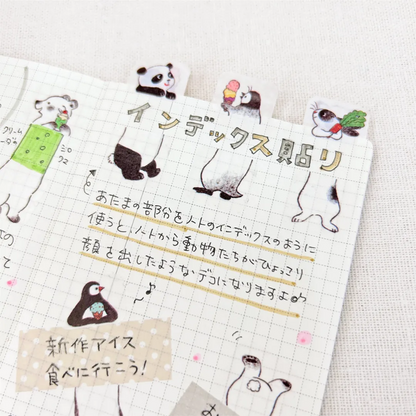 インデックス貼り
あたまの部分をノートのインデックスのように
使うと、ノートから動物たちがひょっこり
顔を出したようなデコになりますよ
クリーム
新作アイス
食べに行こう!